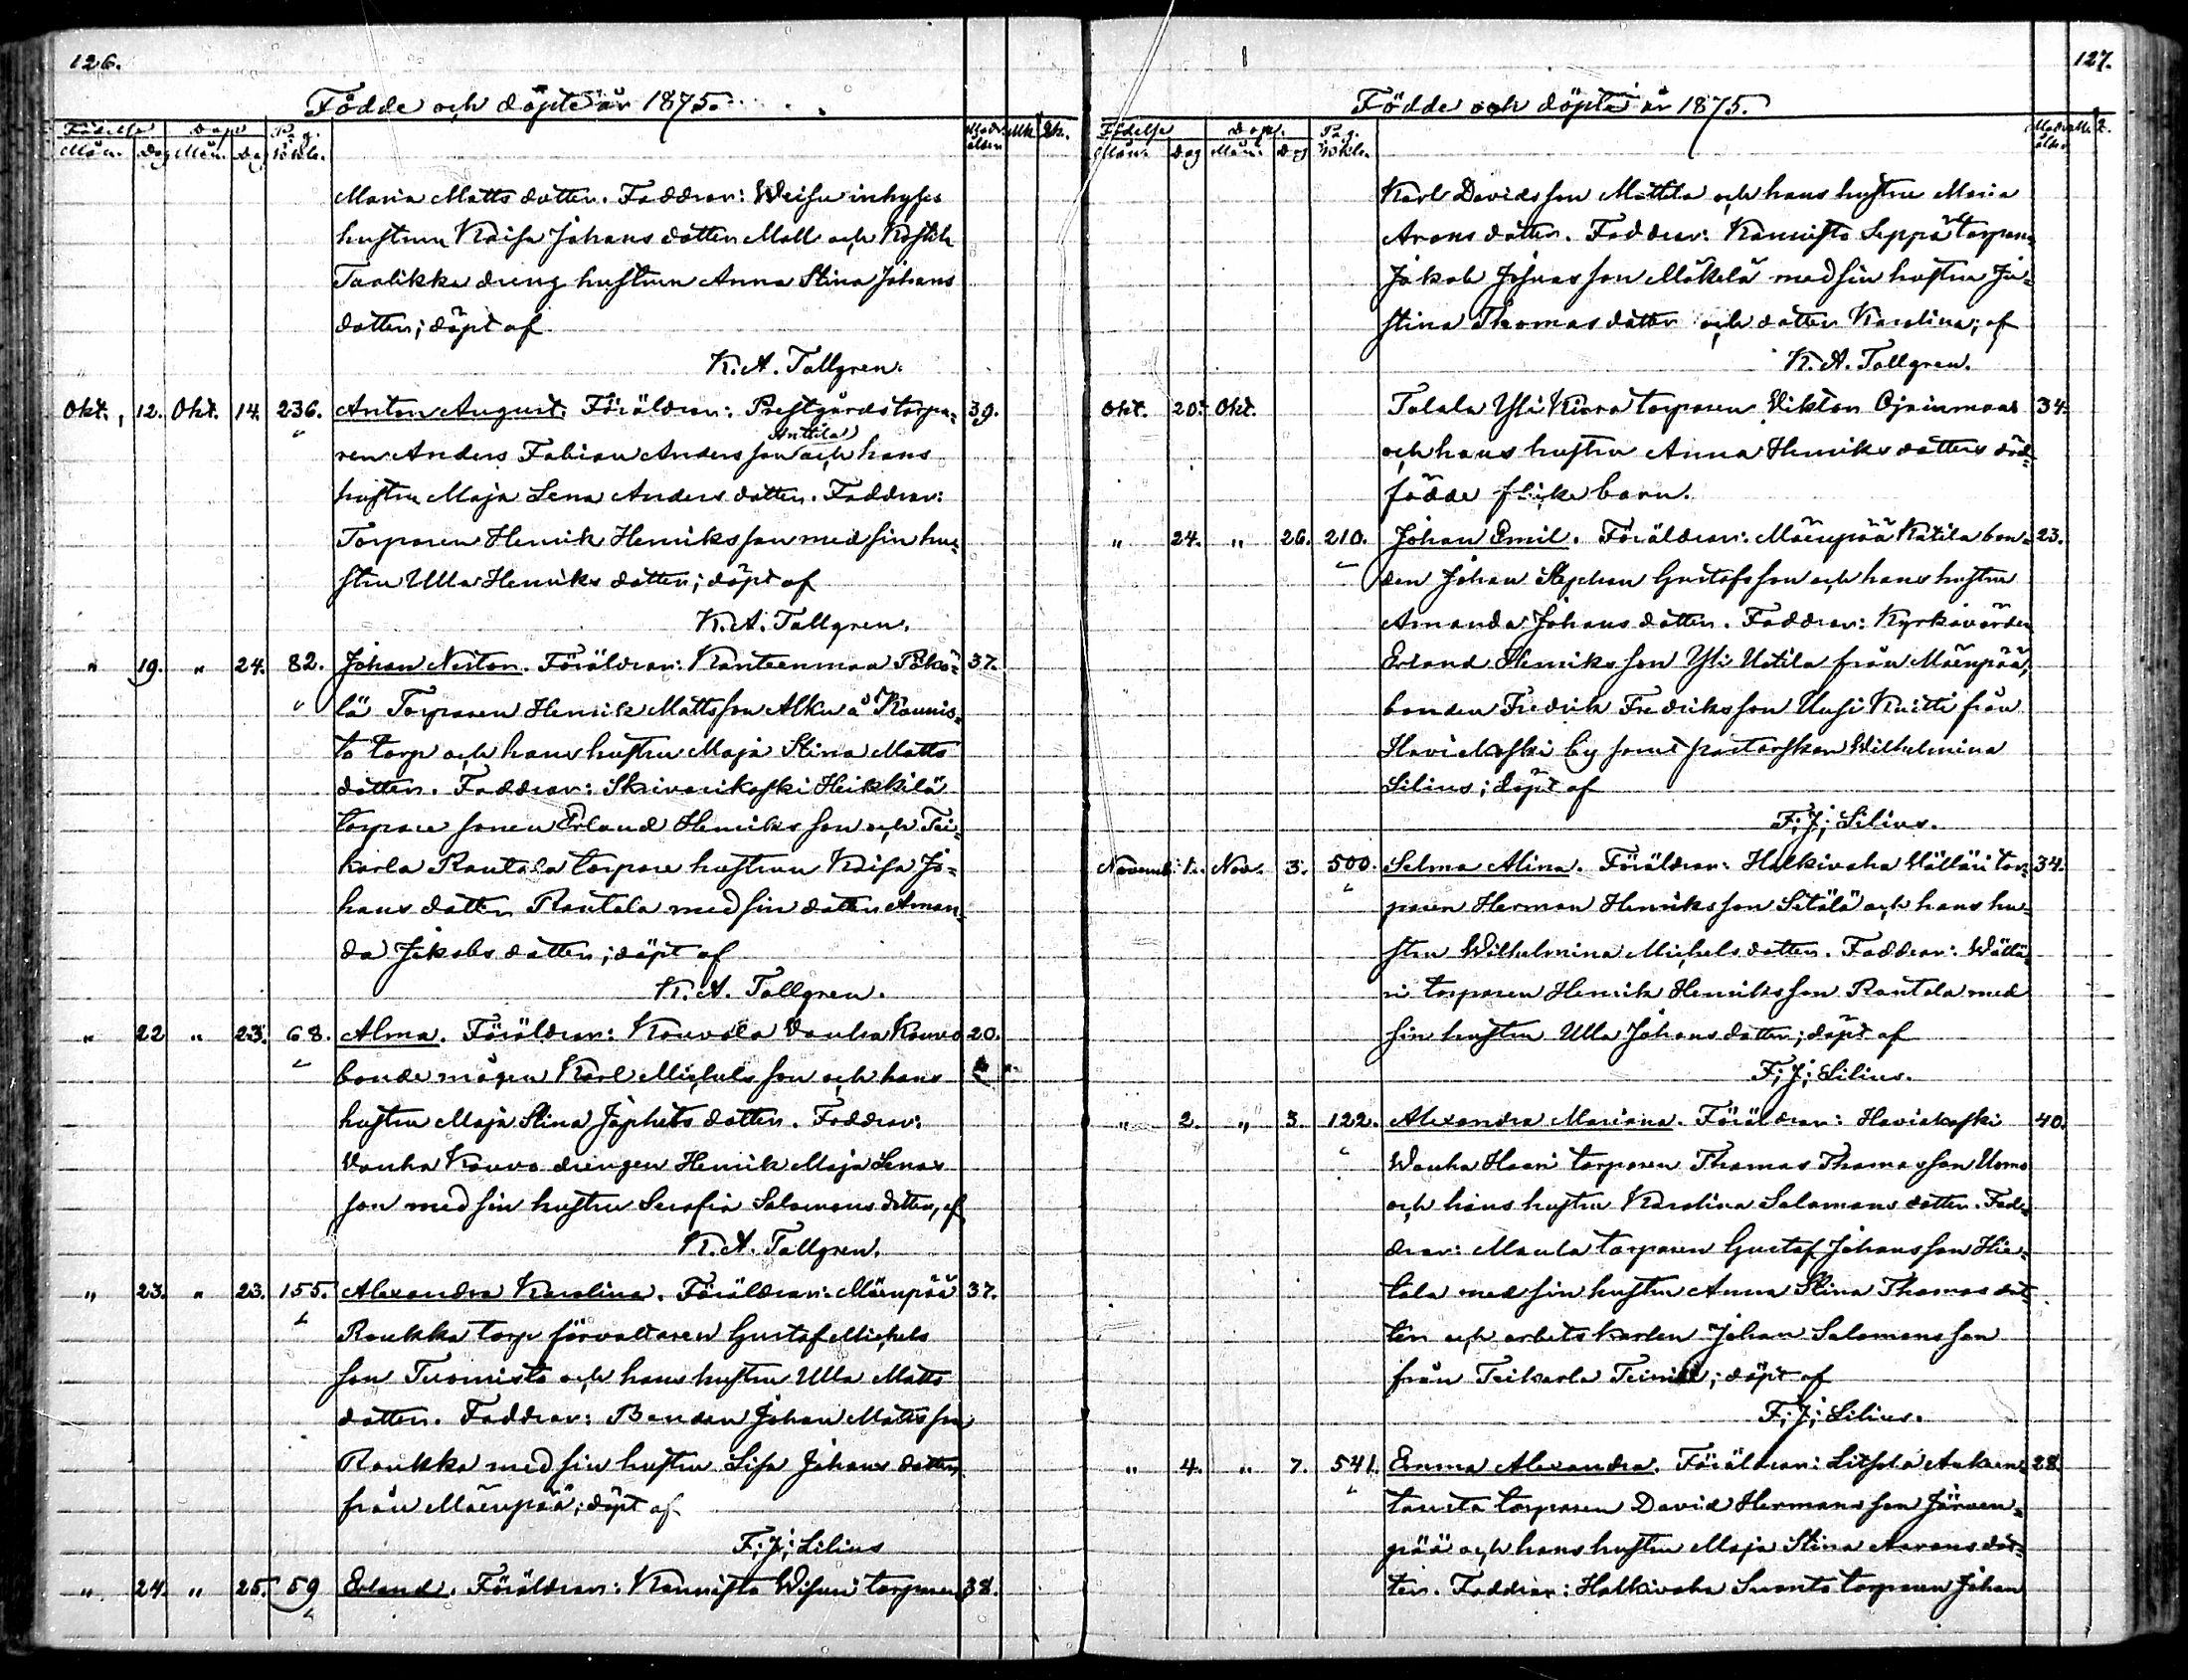 126.
Födde och döpte år 1875.
Födelse Dop Pag. Moders
Mån. Dag Mån. Dag ålder Mk.
Maria Matts dotter. Faddrar: Weisu inhyses
hustrun Kaisa Johans dotter Mall och
Taalikka dreng hustrun Anna Stina Johans
dotter; döpt af
K. A. Tallgren.
Okt. 12. Okt. 14. 236. Anton August. Föräldrar: Prestgårds torpa- 39.
Anttila
ren Anders Fabian Andersson och hans
hustru Maja Lena Anders dotter. Faddrar:
Torparen Henrik Henriksson med sin hu-
stru Ulla Henriks dotter; döpt af
K. A. Tallgren.
" 19. " 24. 82. Johan Nestor. Föräldrar: Kanteenmaa 37.
lä Torparen Henrik Mattsson Alku å Kaunis-
to torp och hans hustru Maja Stina Matts
dotter. Faddrar: Heikkilä
torpare sonen Erland Henriksson och Tei-
karla Rantala torpare hustrun Kaisa Jo-
hans dotter Rantala med sin dotter Aman-
da Jakobs dotter; döpt af
K. A. Tallgren.
" 22 " 23. 68. Alma. Föräldrar: Kouvola Vanha Kouvo 20.
bonde mågen Karl Michelsson och hans
hustru Maja Stina Japhets dotter. Faddrar:
Vanha Kouvo drengen Henrik Maja Lenas
son med sin hustru Serafia Salomons dotter, af
K. A. Tallgren.
" 23. " 23. 155. Alexandra Karolina. Föräldrar: Mäenpää 37.
Raukka torp förvaltaren Gustaf Michels
son Tuomisto och hans hustru Ulla Matts
dotter. Faddrar: Bonden Johan Mattsson
Raukka med sin hustru Lisa Johans dotter
från Mäenpää; döpt af
F; J; Lilius
" 24. " 25. 59 Erland. Föräldrar: Kannisto torparen 38.
127.
Födde och döpte år 1875.
Födelse Dop. Pag. Moders
Mån. Dag Mån. Dag ålder
Karl Davidsson Mattila och hans hustru Maria
Arons dotter. Faddrar: Kannisto Seppä torparen
Jakob Josuasson Mäkelä med sin hustru Ju-
stina Thomas dotter och dotter Karolina; af
K. A. Tallgren.
Okt. 20. Okt. Talala Yli Kiara torparen Viktor Ojainmaas 34.
och hans hustru Anna Henriks dotters död-
födde flicke barn.
" 24. " 26. 210. Johan Emil. Föräldrar: Mäenpää Katila bon- 23.
den Johan Stephan Gustafsson och hans hustru
Amanda Johans dotter. Faddrar: Kyrkovärden
Erland Henriksson Yli Uotila från Mäenpää,
bonden Fredrik Fredriksson Uusi Knitti från
Haviokoski by samt pastorskan Wilhelmina
Lilius; döpt af
F; J; Lilius.
Novemb. 1. Nov. 3. 500. Selma Alina. Föräldrar: Halkivaha Wälläri tor- 34.
paren Herman Henriksson Sitälä och hans hu-
stru Wilhelmina Michels dotter. Faddrar: Wällä-
ri torparen Henrik Henriksson Rantala med
sin hustru Ulla Johans dotter; döpt af
F; J; Lilius.
" 2. " 3. 122. Alexandra Mariana. Föräldrar: Haviokoski 40.
Wanha Haari torparen Thomas Thomasson
och hans hustru Karolina Salomons dotter. Fad-
drar: Maula torparen Gustaf Johansson Hie-
tala med sin hustru Anna Stina Thomas dot-
ter och arbets karlen Johan Salomonsson
från Teikarla; döpt af
F; J; Lilius.
" 4. " 7. 541. Emma Alexandra. Föräldrar: 28.
torparen David Hermansson Järven-
pää och hans hustru Maja Stina Aarons dot-
ter. Faddrar: Halkivaha torparen Johan